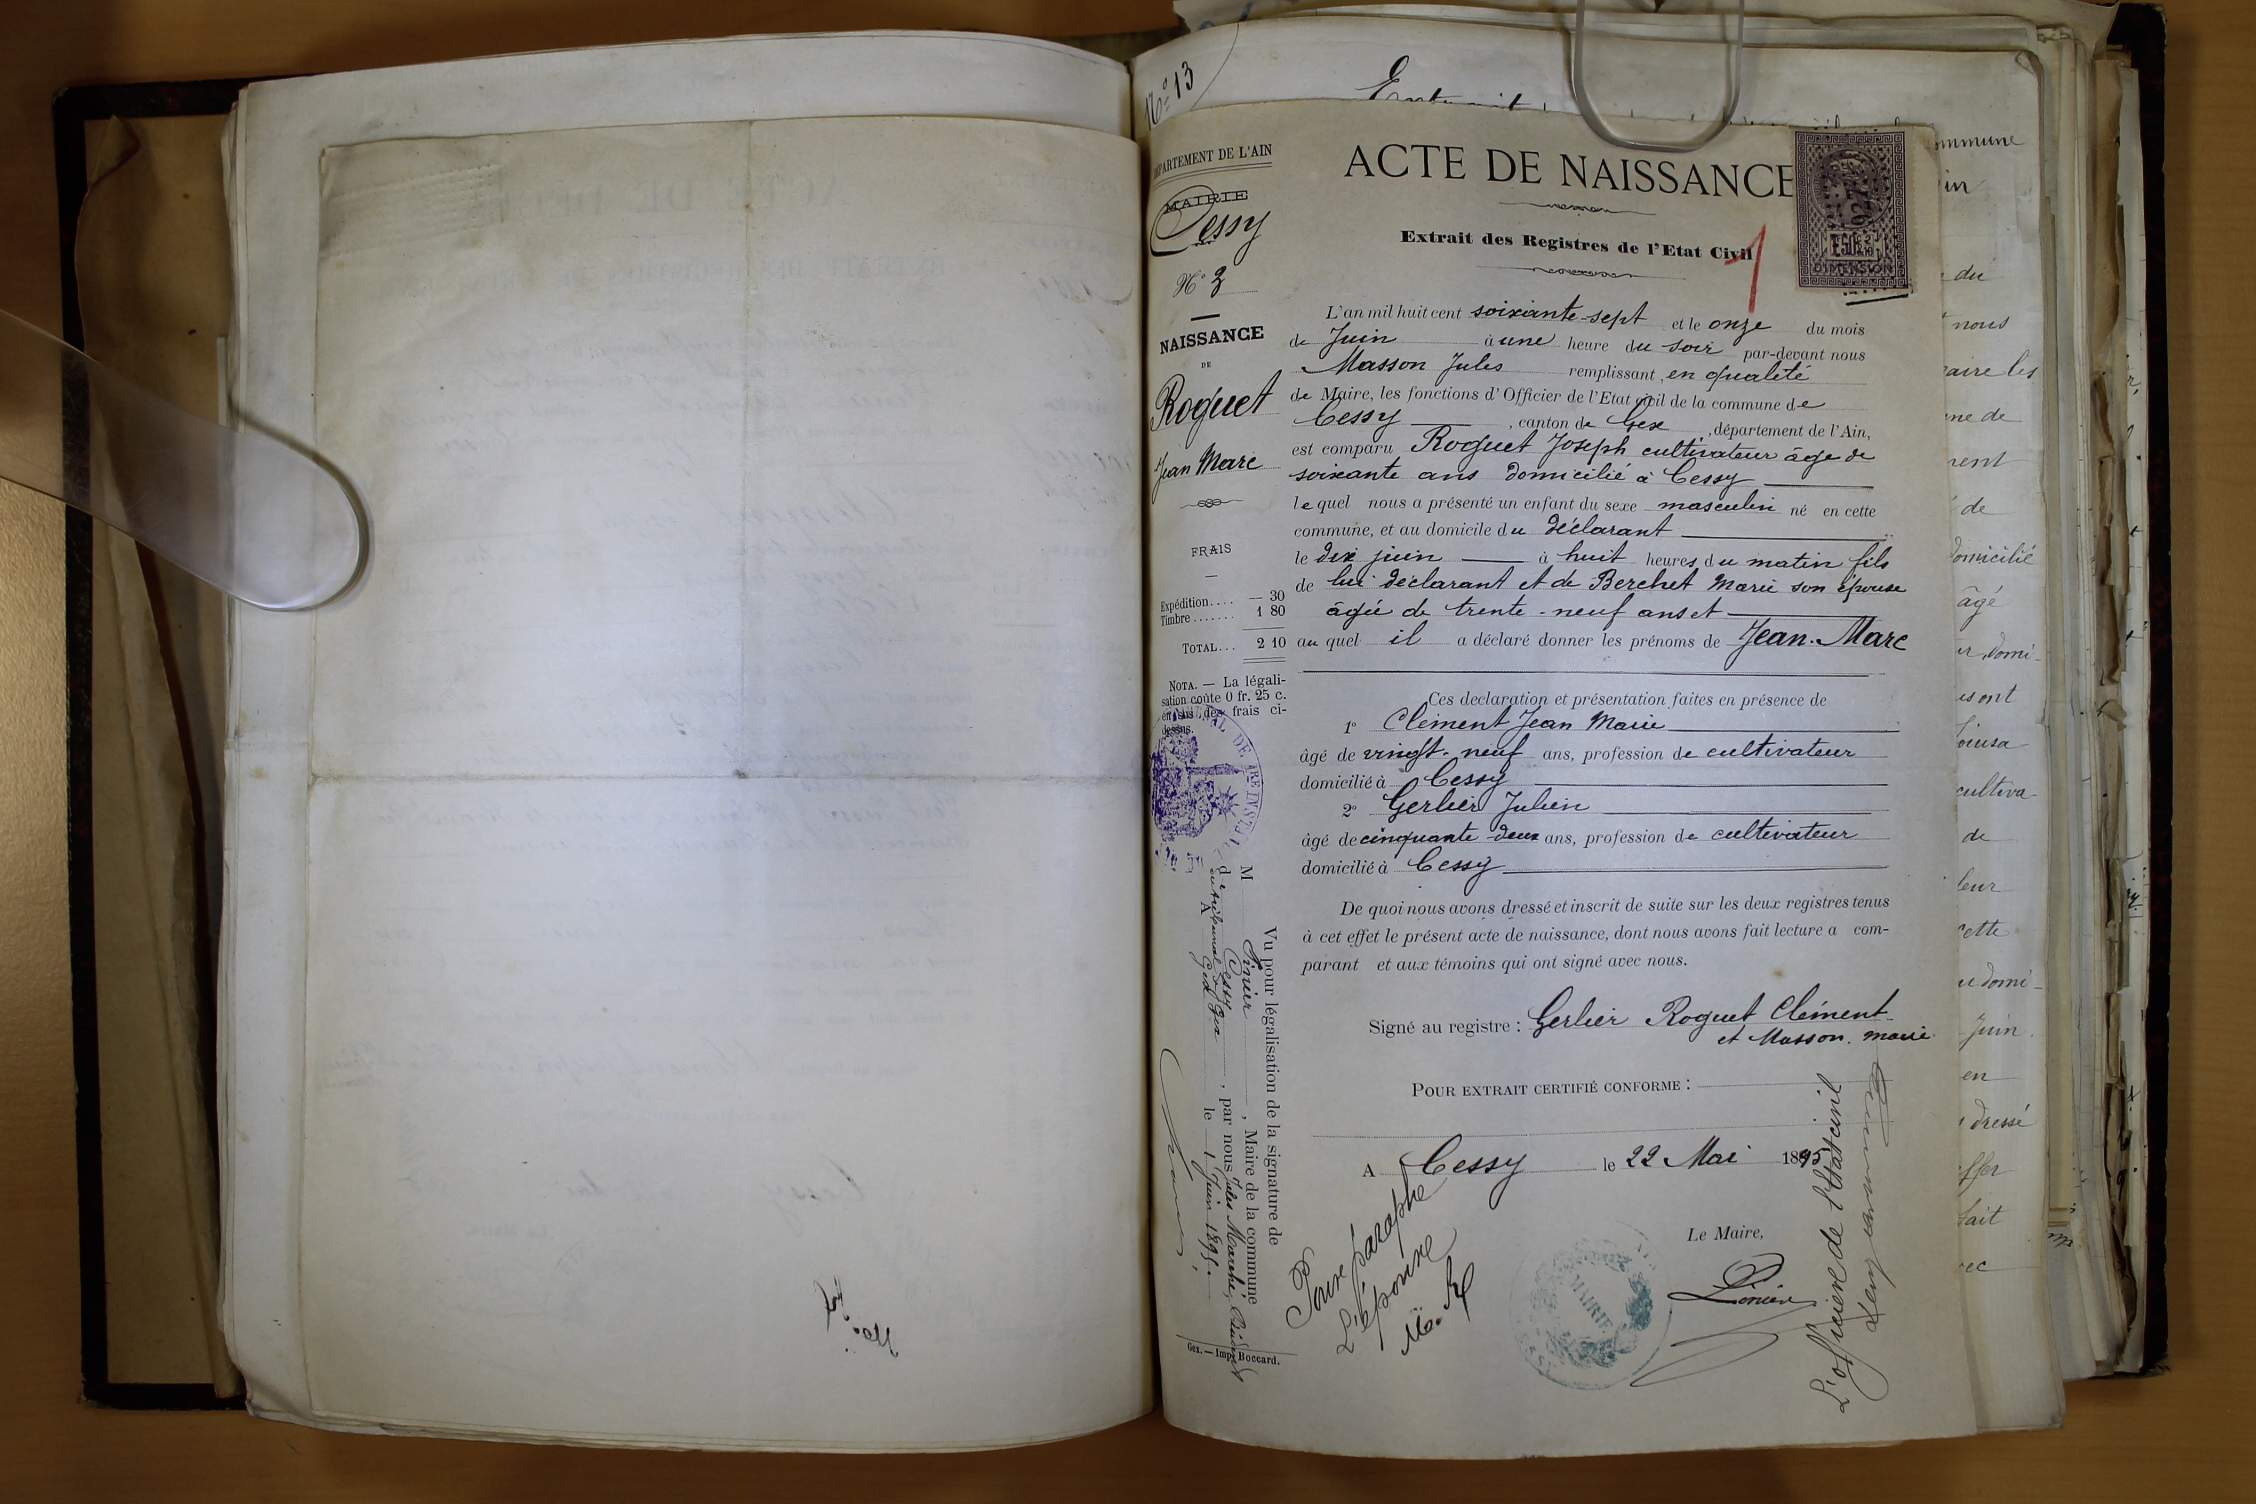 N° 13
DÉPARTEMENT DE L'AIN
MAIRIE
Cessy
N° 3
NAISSANCE
DE
Roguet
Jean Marc
FRAIS
Expédition.... — 30
Timbre....... 1 80
TOTAL... 2 10
NOTA. — La légali-
sation coûte 0 fr. 25 c.
en sus des frais ci-
dessus.
ACTE DE NAISSANCE
Extrait des Registres de l'Etat Civil
1
DIMENSION
L'an mil huit cent soixante-sept et le onze du mois
de Juin à une heure du soir par-devant nous
Masson Jules remplissant, en qualité
de Maire, les fonctions d'Officier de l'Etat civil de la commune de
Cessy, canton de Gex, département de l'Ain,
est comparu Roguet Joseph cultivateur âge de
soixante ans domicilié à Cessy
lequel nous a présenté un enfant du sexe masculin né en cette
commune, et au domicile du déclarant
le dix juin à huit heures du matin fils
de lui déclarant et de Berchet Marie son épouse
âgée de trente-neuf ans et
auquel il a déclaré donner les prénoms de Jean-Marc
Ces declaration et présentation faites en présence de
1° Clément Jean Marie
âgé de vingt-neuf ans, profession de cultivateur
domicilié à Cessy
2° Gerlier Julien
âgé de cinquante-deux ans, profession de cultivateur
domicilié à Cessy
De quoi nous avons dressé et inscrit de suite sur les deux registres tenus
à cet effet le présent acte de naissance, dont nous avons fait lecture a com-
parant et aux témoins qui ont signé avec nous.
Signé au registre : Gerlier Roguet Clément
et Masson. maire
POUR EXTRAIT CERTIFIÉ CONFORME :
A Cessy le 22 Mai 1895
Le Maire,
MAIRIE
Pour paraphe
L'épouse
L'officier de l'Etat civil
Vu pour légalisation de la signature de
M , Maire de la commune
de Cessy Gex, par nous Jules
du tribunal de Gex
A Gex le 1 Juin 1895
Gex. — Imp. Boccard.
mmune
in
du
nous
aire les
ne de
ment
de
domicilié
âgé
domi-
cultiva-
de
leur
cette
domi-
Juin
en
dressé
fait